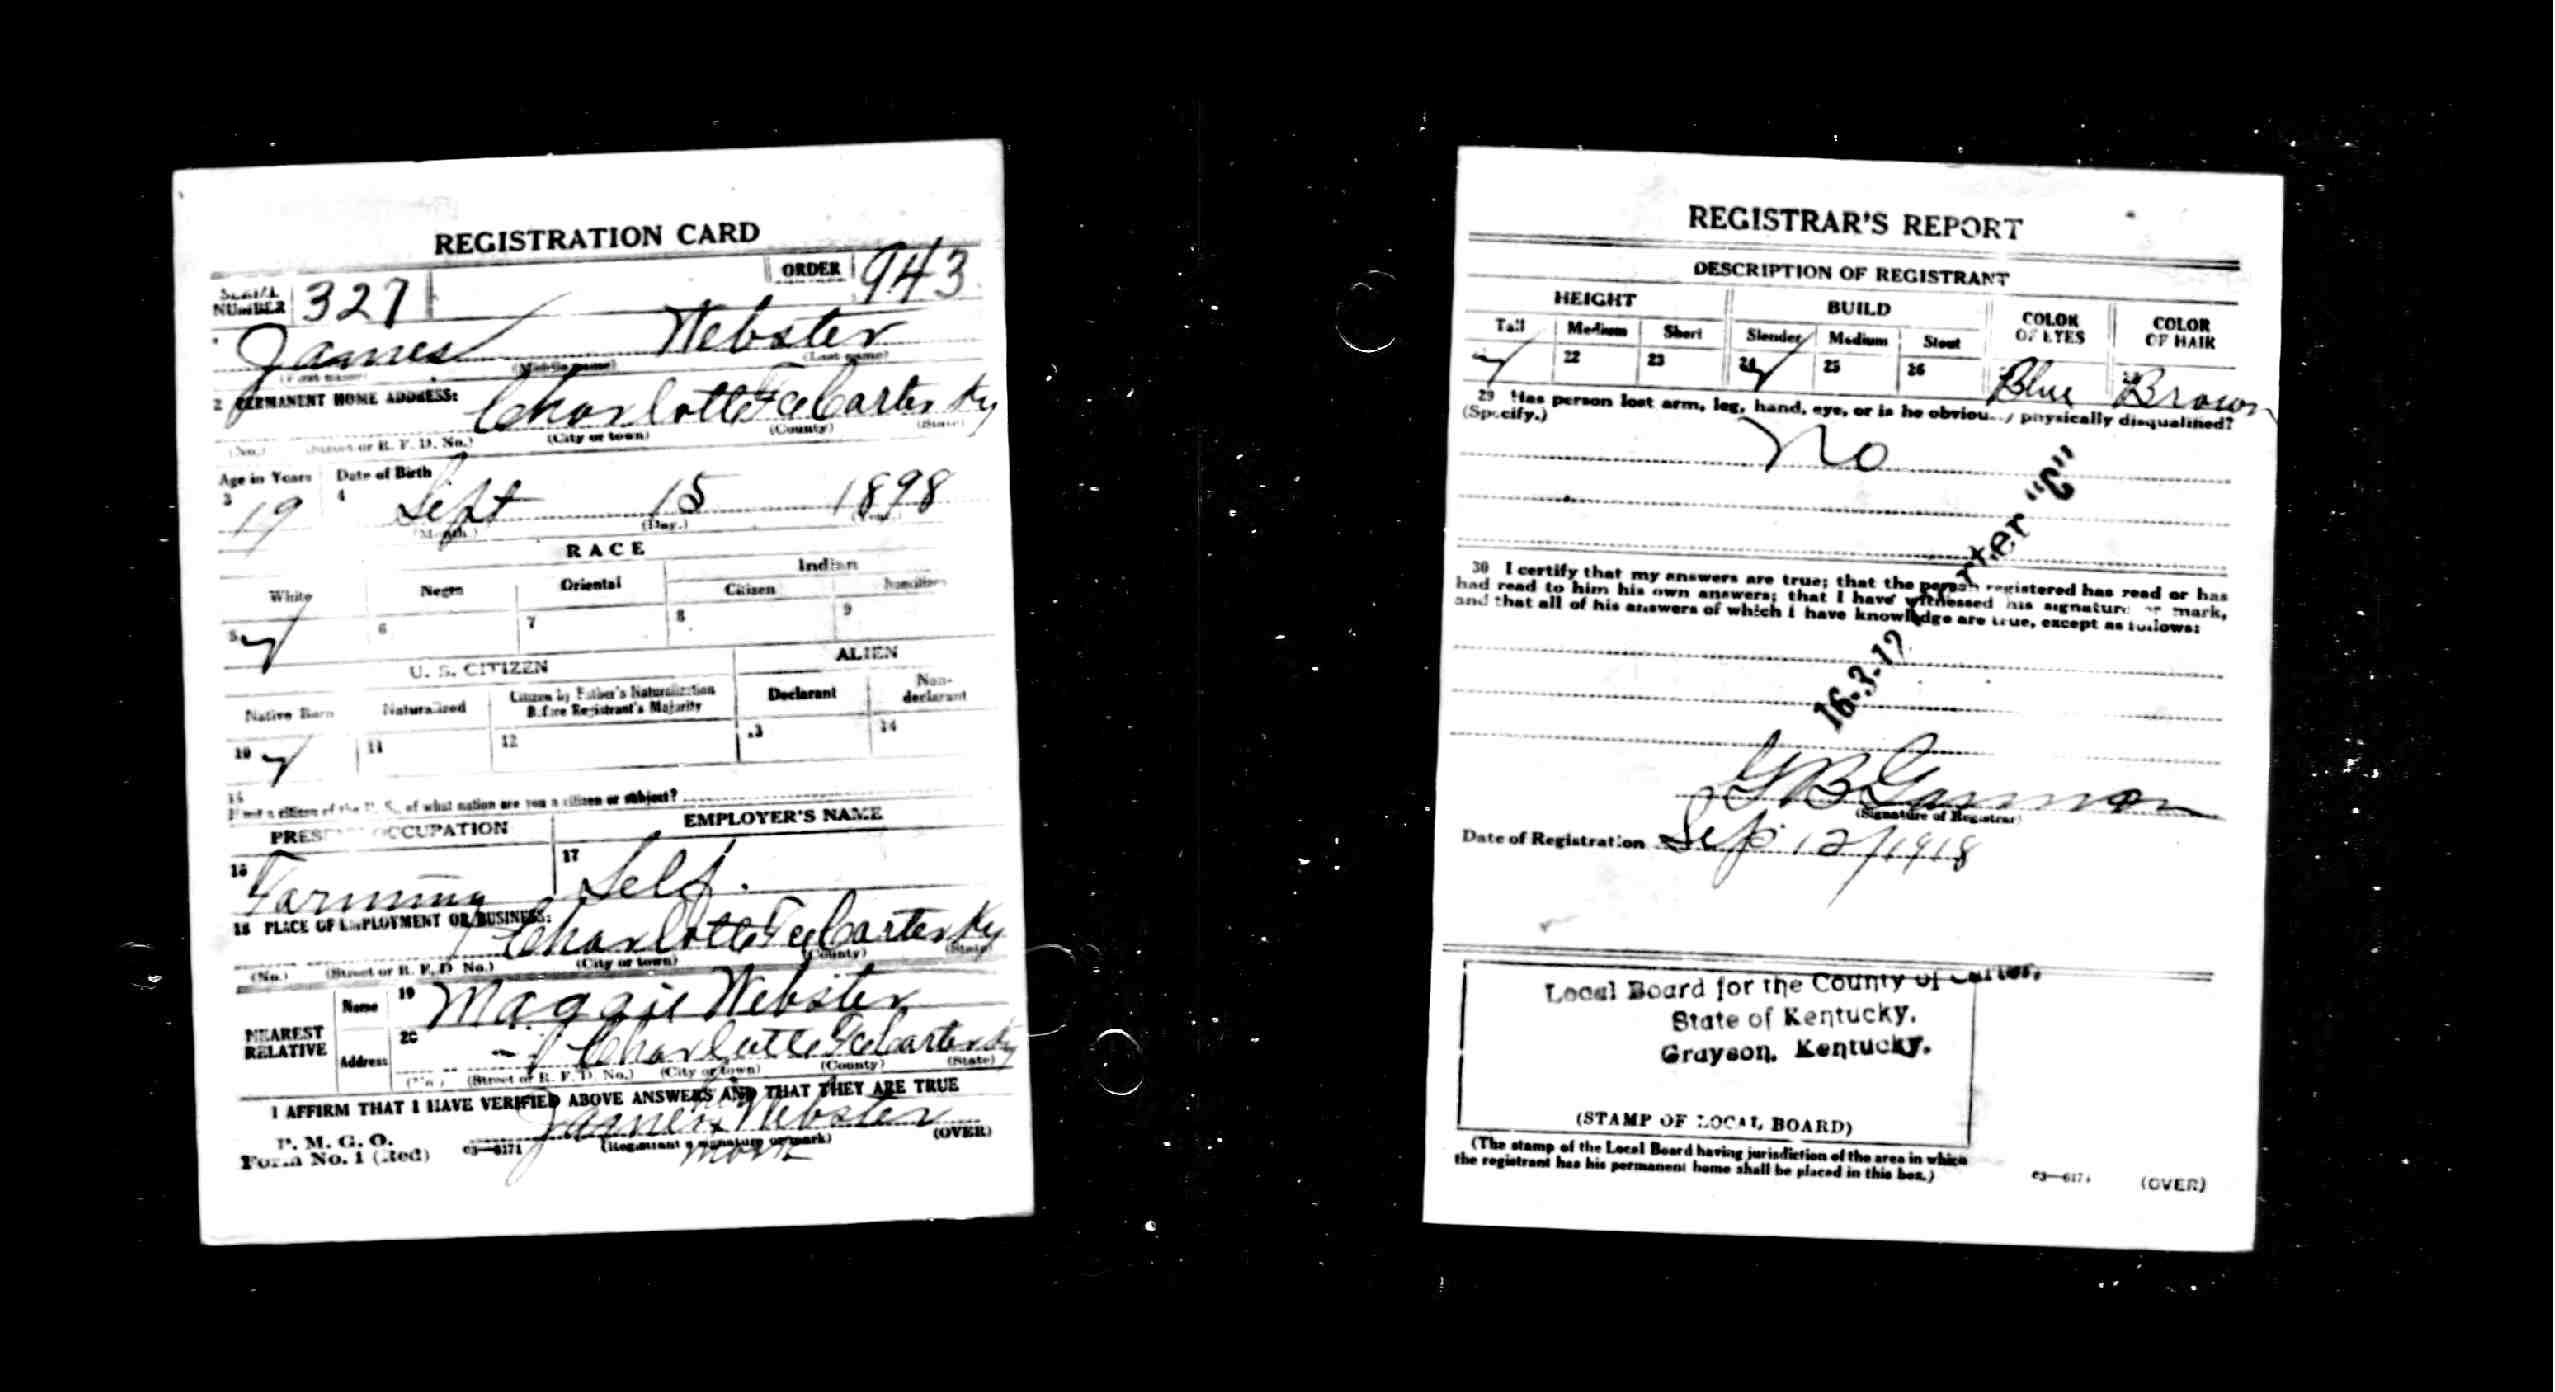 REGISTRATION CARD
SERIAL NUMBER 327 ORDER 943
James Webster
(First name) (Middle name) (Last name)
2 PERMANENT HOME ADDRESS: Charlotte Fce Carter Ky
(No.) (Street or R. F. D. No.) (City or town) (County) (State)
Age in Years Date of Birth
3 19 4 Sept 15 1898
(Month.) (Day.) (Year.)
RACE
White Negro Oriental Indian
Citizen Noncitizen
5 ✓ 6 7 8 9
U. S. CITIZEN ALIEN
Native Born Naturalized Citizen by Father's Naturalization Before Registrant's Majority Declarant Non-declarant
10 ✓ 11 12 13 14
15
If not a citizen of the U. S., of what nation are you a citizen or subject?
PRESENT OCCUPATION EMPLOYER'S NAME
16 Farming 17 Self.
18 PLACE OF EMPLOYMENT OR BUSINESS:
Charlotte Fce Carter Ky
(No.) (Street or R. F. D. No.) (City or town) (County) (State)
NEAREST RELATIVE
Name 19 Maggie Webster
Address 20 Charlotte Fce Carter Ky
(No.) (Street or R. F. D. No.) (City or town) (County) (State)
I AFFIRM THAT I HAVE VERIFIED ABOVE ANSWERS AND THAT THEY ARE TRUE
his
James x Webster
P. M. G. O.
Form No. 1 (Red) 03—6171 (Registrant's signature or mark) (OVER)
mark
REGISTRAR'S REPORT
DESCRIPTION OF REGISTRANT
HEIGHT BUILD COLOR OF EYES COLOR OF HAIR
Tall Medium Short Slender Medium Stout
✓ 22 23 24 ✓ 25 26 Blue Brown
29 Has person lost arm, leg, hand, eye, or is he obviously physically disqualified?
(Specify.)
No
30 I certify that my answers are true; that the person registered has read or has
had read to him his own answers; that I have witnessed his signature or mark,
and that all of his answers of which I have knowledge are true, except as follows:
16-3-17 Carter "C"
G B Garmon
(Signature of Registrar)
Date of Registration Sep 12/1918
Local Board for the County of Carter,
State of Kentucky,
Grayson, Kentucky.
(STAMP OF LOCAL BOARD)
(The stamp of the Local Board having jurisdiction of the area in which
the registrant has his permanent home shall be placed in this box.)
03—6171 (OVER)